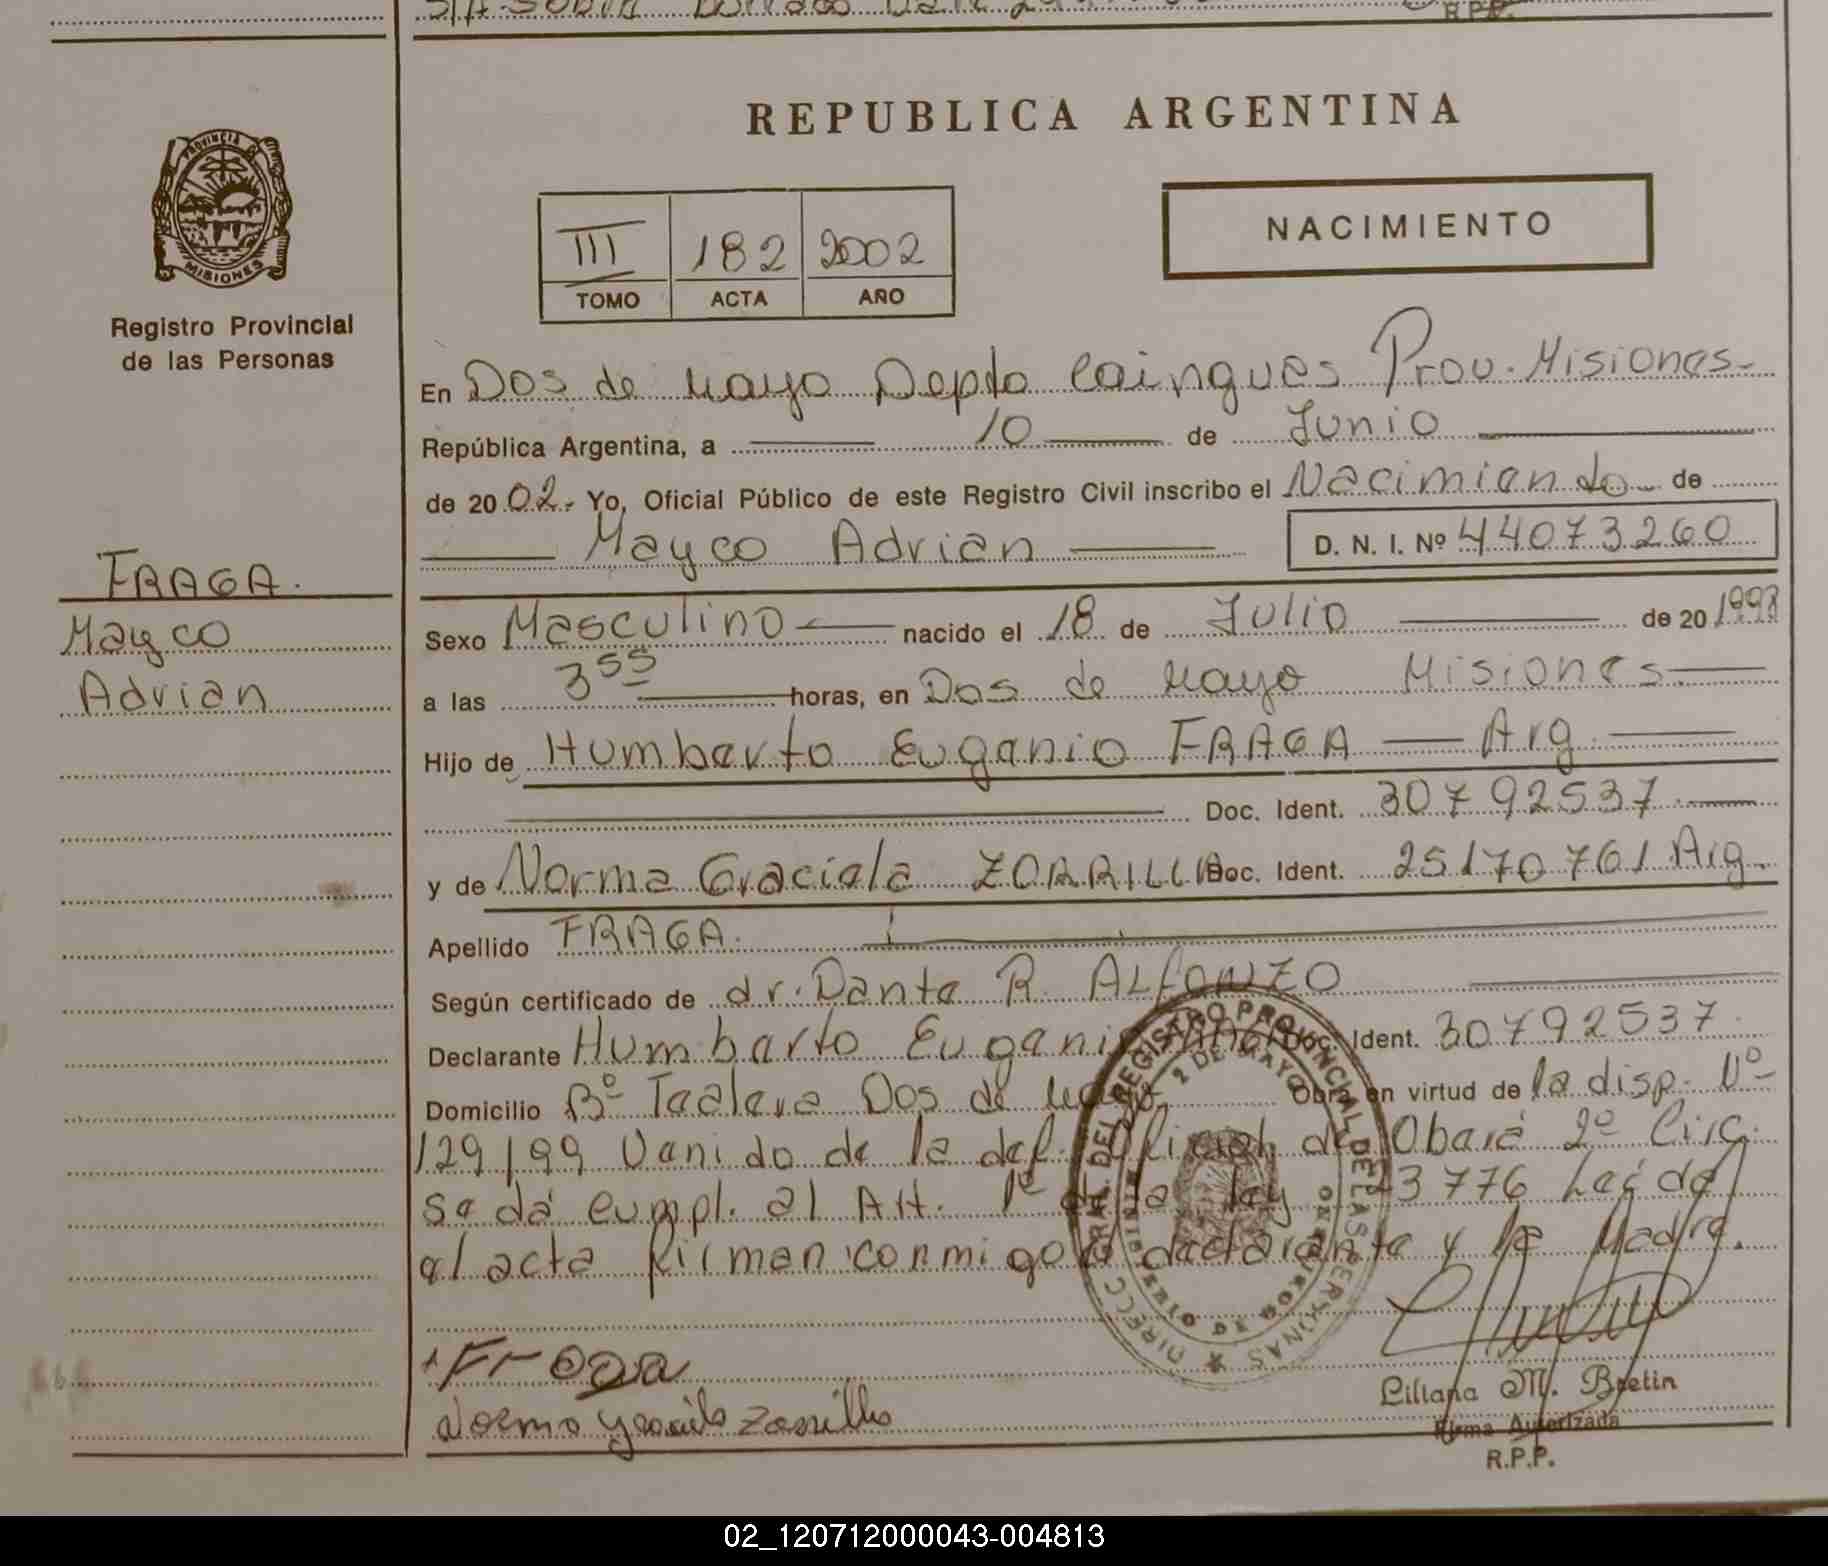 REPUBLICA ARGENTINA
PROVINCIA DE
MISIONES
Registro Provincial
de las Personas
III 182 2002
TOMO ACTA AÑO
NACIMIENTO
En Dos de Mayo Depto Cainguas Prov. Misiones
República Argentina, a 10 de Junio
de 2002. Yo, Oficial Público de este Registro Civil inscribo el Nacimiento de
Mayco Adrian D. N. I. Nº 44073260
FRAGA.
Mayco
Adrian
Sexo Masculino nacido el 18 de Julio de 20 1998
a las 3 55 horas, en Dos de Mayo Misiones
Hijo de Humberto Eugenio FRAGA Arg
Doc. Ident. 30792537
y de Norma Graciela ZORRILLA Doc. Ident. 25170761 Arg.
Apellido FRAGA.
Según certificado de dr. Dante R. ALFONZO
Declarante Humberto Eugenio Doc. Ident. 30792537
Domicilio Bº Dos de Mayo Obra en virtud de la disp. Nº
129/99 Venido de la def. Oficial de Oberá 2º Circ.
se dá cumpl. al Art. 1º de la ley 23776 Leída
el acta firman conmigo el declarante y la Madre.
DIRECC. GRAL. DEL REGISTRO PROVINCIAL DE LAS PERSONAS
2 DE MAYO
Fraga
Norma Graciela Zorrilla
Liliana M. Bretin
Firma Autorizada
R.P.P.
02_120712000043-004813